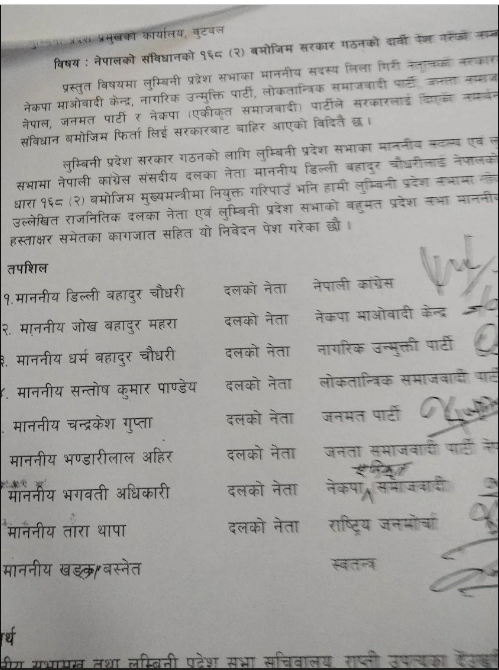 लुम्बिनी प्रदेश प्रमुखको कार्यालय, बुटवल
विषय : नेपालको संविधानको १६८ (२) बमोजिम सरकार गठनको दावी पेश गरेको
प्रस्तुत विषयमा लुम्बिनी प्रदेश सभाका माननीय सदस्य लिला गिरी नेतृत्वको सरकार
नेकपा माओवादी केन्द्र, नागरिक उन्मुक्ति पार्टी, लोकतान्त्रिक समाजवादी पार्टी, जनता
नेपाल, जनमत पार्टी र नेकपा (एकीकृत समाजवादी) पार्टीले सरकारलाई दिएको समर्थन
संविधान बमोजिम फिर्ता लिई सरकारबाट बाहिर आएको विदितै छ ।
लुम्बिनी प्रदेश सरकार गठनको लागि लुम्बिनी प्रदेश सभाका माननीय सदस्य एवं
सभामा नेपाली कांग्रेस संसदीय दलका नेता माननीय डिल्ली बहादुर चौधरीलाई नेपालको
धारा १६८ (२) बमोजिम मुख्यमन्त्रीमा नियुक्त गरिपाउँ भनि हामी लुम्बिनी प्रदेश सभामा
उल्लेखित राजनितिक दलका नेता एवं लुम्बिनी प्रदेश सभाको बहुमत प्रदेश सभा माननीय
हस्ताक्षर समेतका कागजात सहित यो निवेदन पेश गरेका छौं ।
तपशिल
१.माननीय डिल्ली बहादुर चौधरी दलको नेता नेपाली कांग्रेस
२. माननीय जोख बहादुर महरा दलको नेता नेकपा माओवादी केन्द्र
३. माननीय धर्म बहादुर चौधरी दलको नेता नागरिक उन्मुक्ती पार्टी
४. माननीय सन्तोष कुमार पाण्डेय दलको नेता लोकतान्त्रिक समाजवादी पार्टी
. माननीय चन्द्रकेश गुप्ता दलको नेता जनमत पार्टी
माननीय भण्डारीलाल अहिर दलको नेता जनता समाजवादी पार्टी
माननीय भगवती अधिकारी दलको नेता नेकपा समाजवादी
माननीय तारा थापा दलको नेता राष्ट्रिय जनमोर्चा
माननीय खड्क बस्नेत स्वतन्त्र
र्थ
सभामुख तथा लुम्बिनी प्रदेश सभा सचिवालय राप्ती उपत्यका